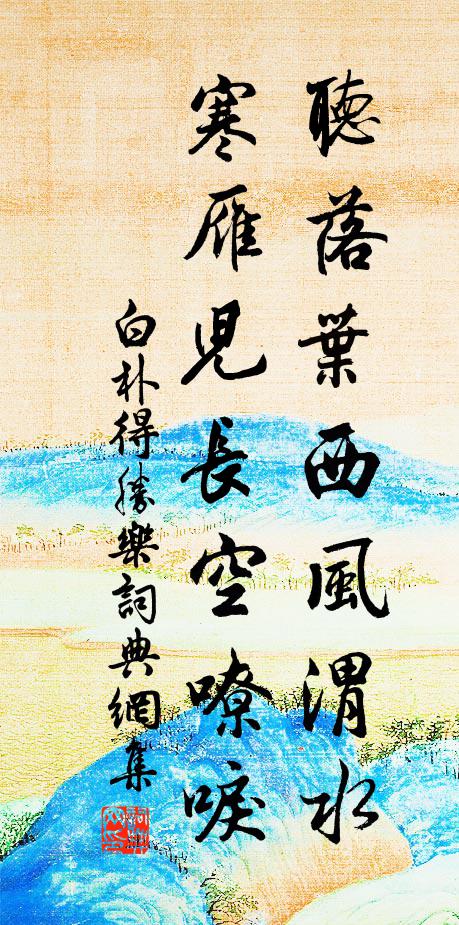 聽落葉西風渭水
寒雁兒長空嘹唳
白朴得勝樂詞典網集